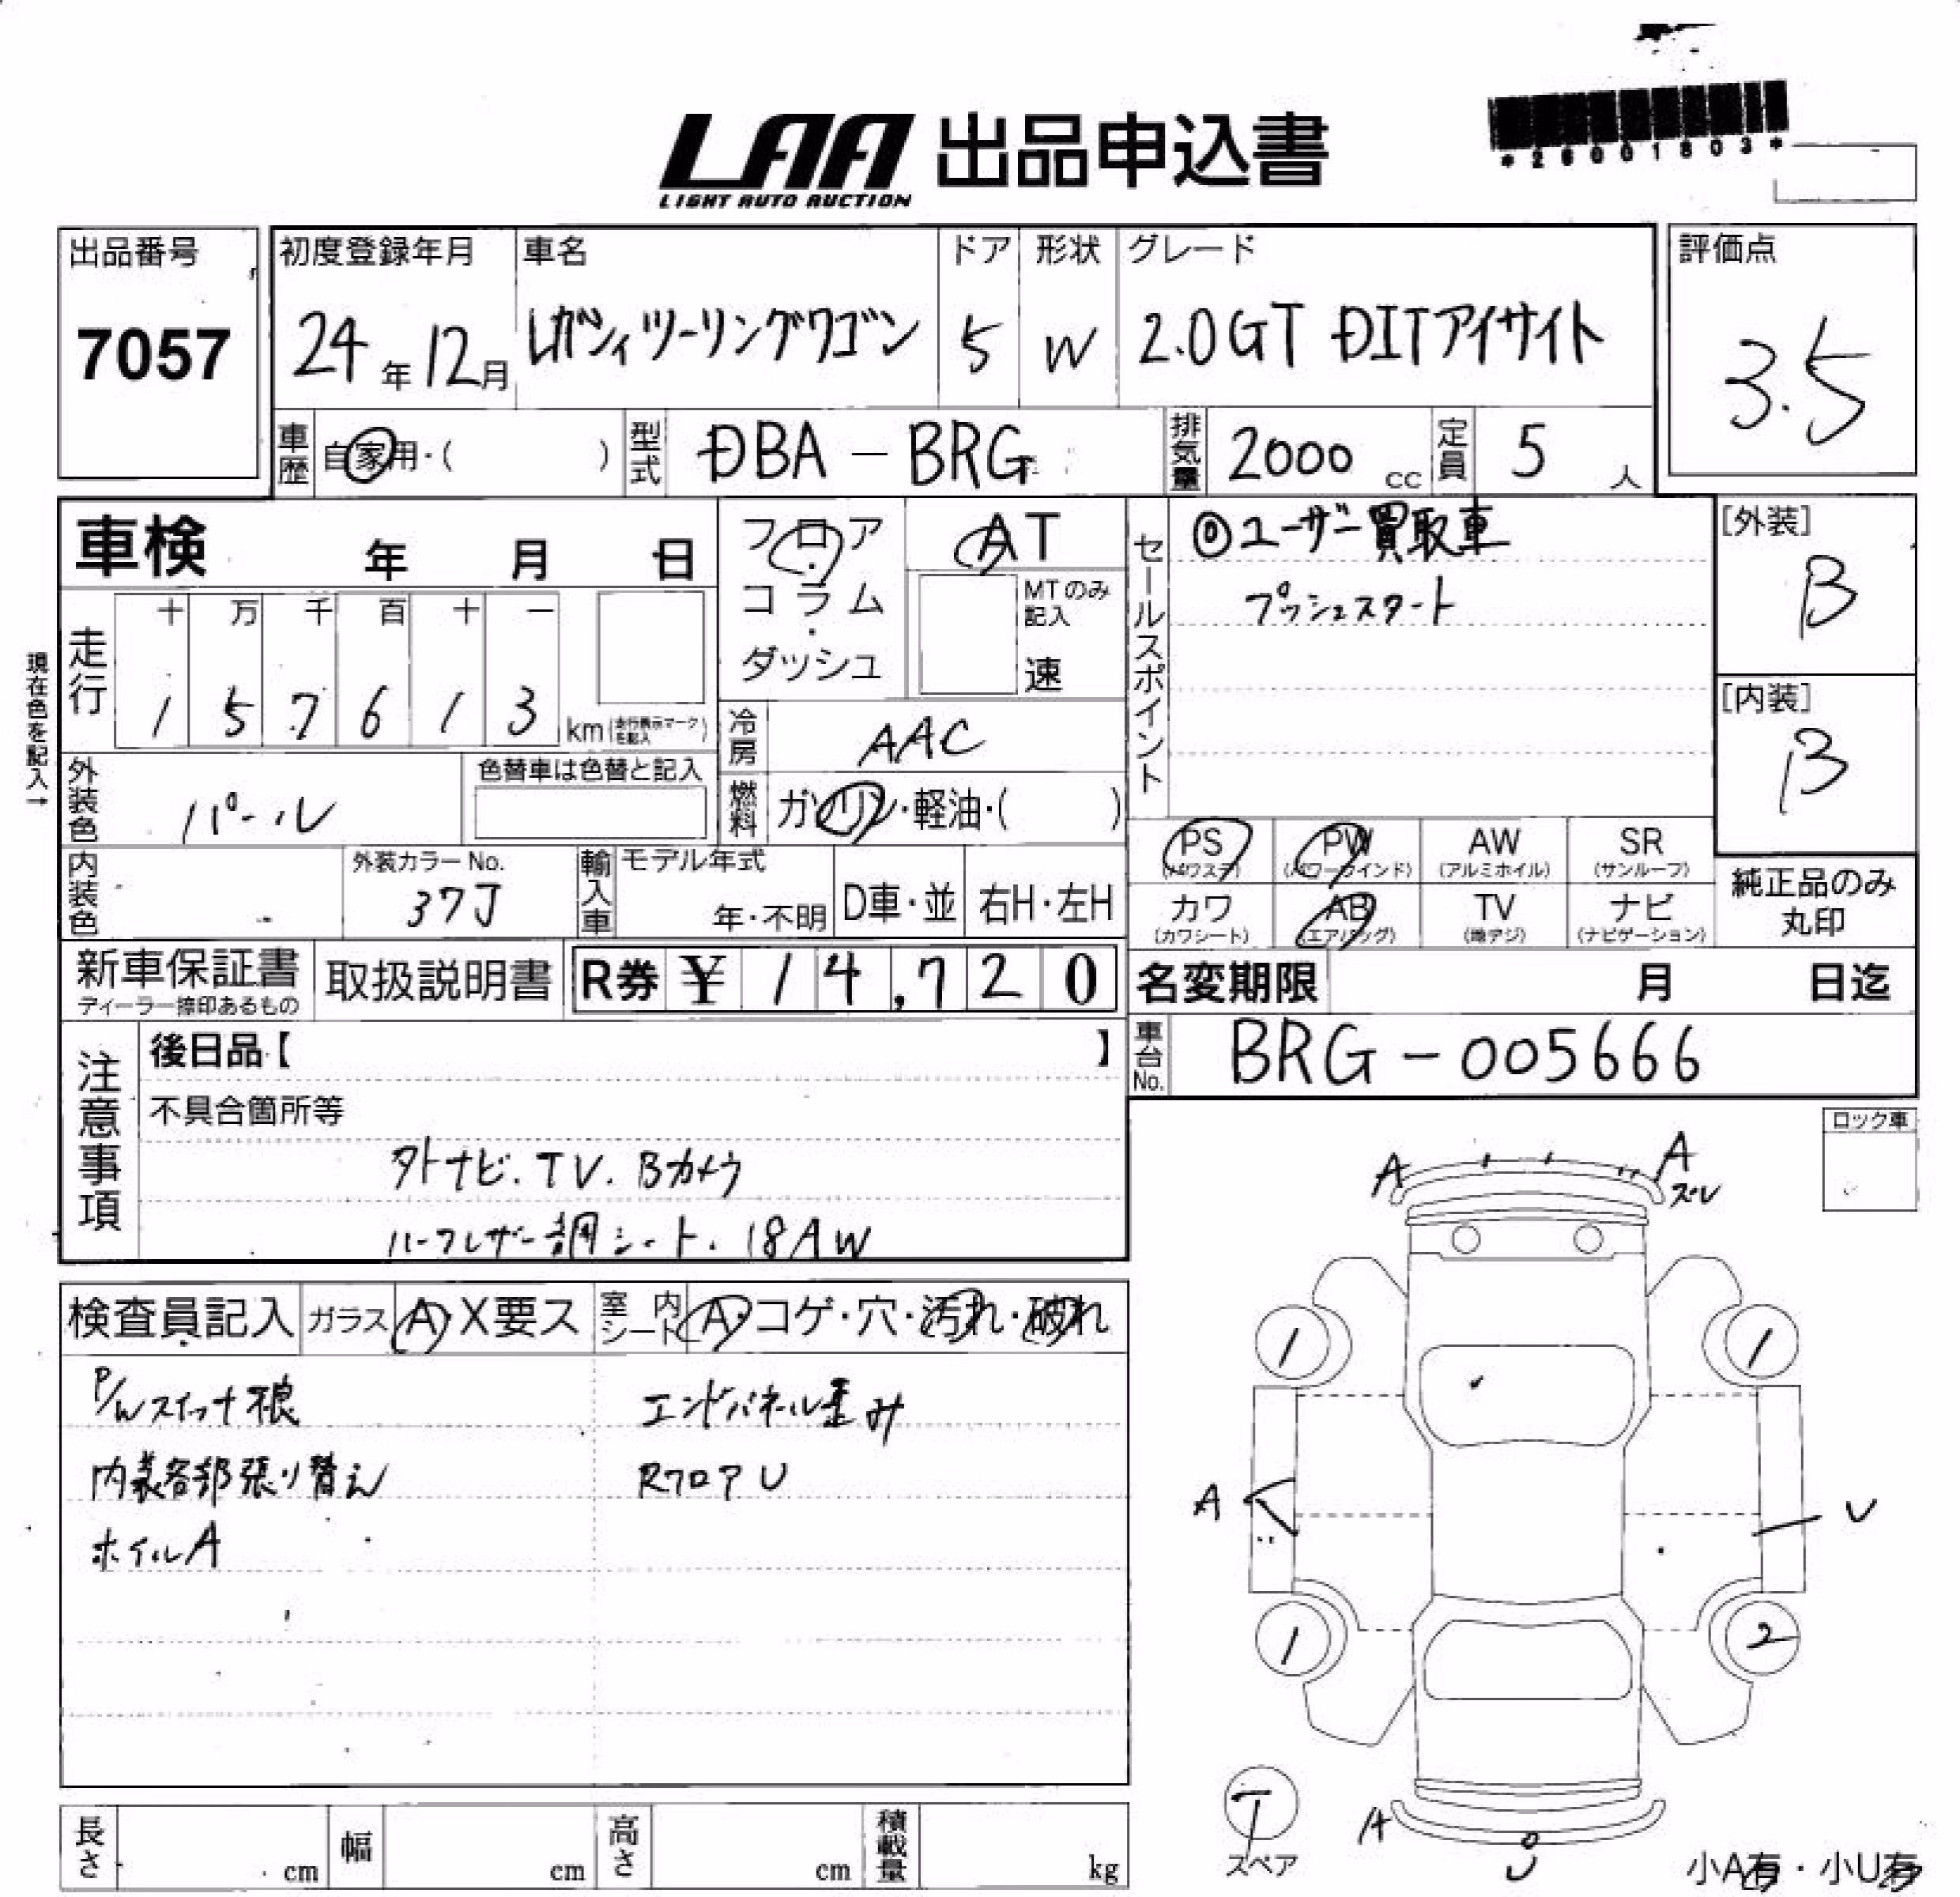 LAA 出品申込書
LIGHT AUTO AUCTION
*26001803*
出品番号
7057
初度登録年月
24年12月
車名
レガシィツーリングワゴン
ドア
5
形状
W
グレード
2.0GT DITアイサイト
評価点
3.5
車歴 自家用・( )
型式 DBA-BRG
排気量 2000 cc
定員 5 人
車検 年 月 日
フロア・コラム・ダッシュ
AT
MTのみ記入
速
セールスポイント
◎ユーザー買取車
プッシュスタート
[外装]
B
[内装]
B
現在色を記入→
走行
十 万 千 百 十 一
1 5 7 6 1 3 km(走行表示マークを記入)
冷房 AAC
外装色 パール
色替車は色替と記入
燃料 ガソリン・軽油・( )
内装色
外装カラーNo.
37J
輸入車
モデル年式
年・不明
D車・並
右H・左H
PS (パワステ)
PW (パワーウインド)
AW (アルミホイル)
SR (サンルーフ)
カワ (カワシート)
AB (エアバッグ)
TV (地デジ)
ナビ (ナビゲーション)
純正品のみ
丸印
新車保証書
ディーラー捺印あるもの
取扱説明書
R券 ¥14,720
名変期限 月 日迄
車台No. BRG-005666
注意事項
後日品【 】
不具合箇所等
外ナビ.TV.Bカメラ
ハーフレザー調シート.18AW
ロック車
検査員記入
ガラス A・X要ス
室内シート A・コゲ・穴・汚れ・破れ
P/Wスイッチ不良
エンドパネル歪み
内装各部張り替え
RフロアU
ホイルA
A
A
ズレ
1
1
A
U
1
2
T
スペア
A
U
小A有・小U有
長さ cm
幅 cm
高さ cm
積載量 kg